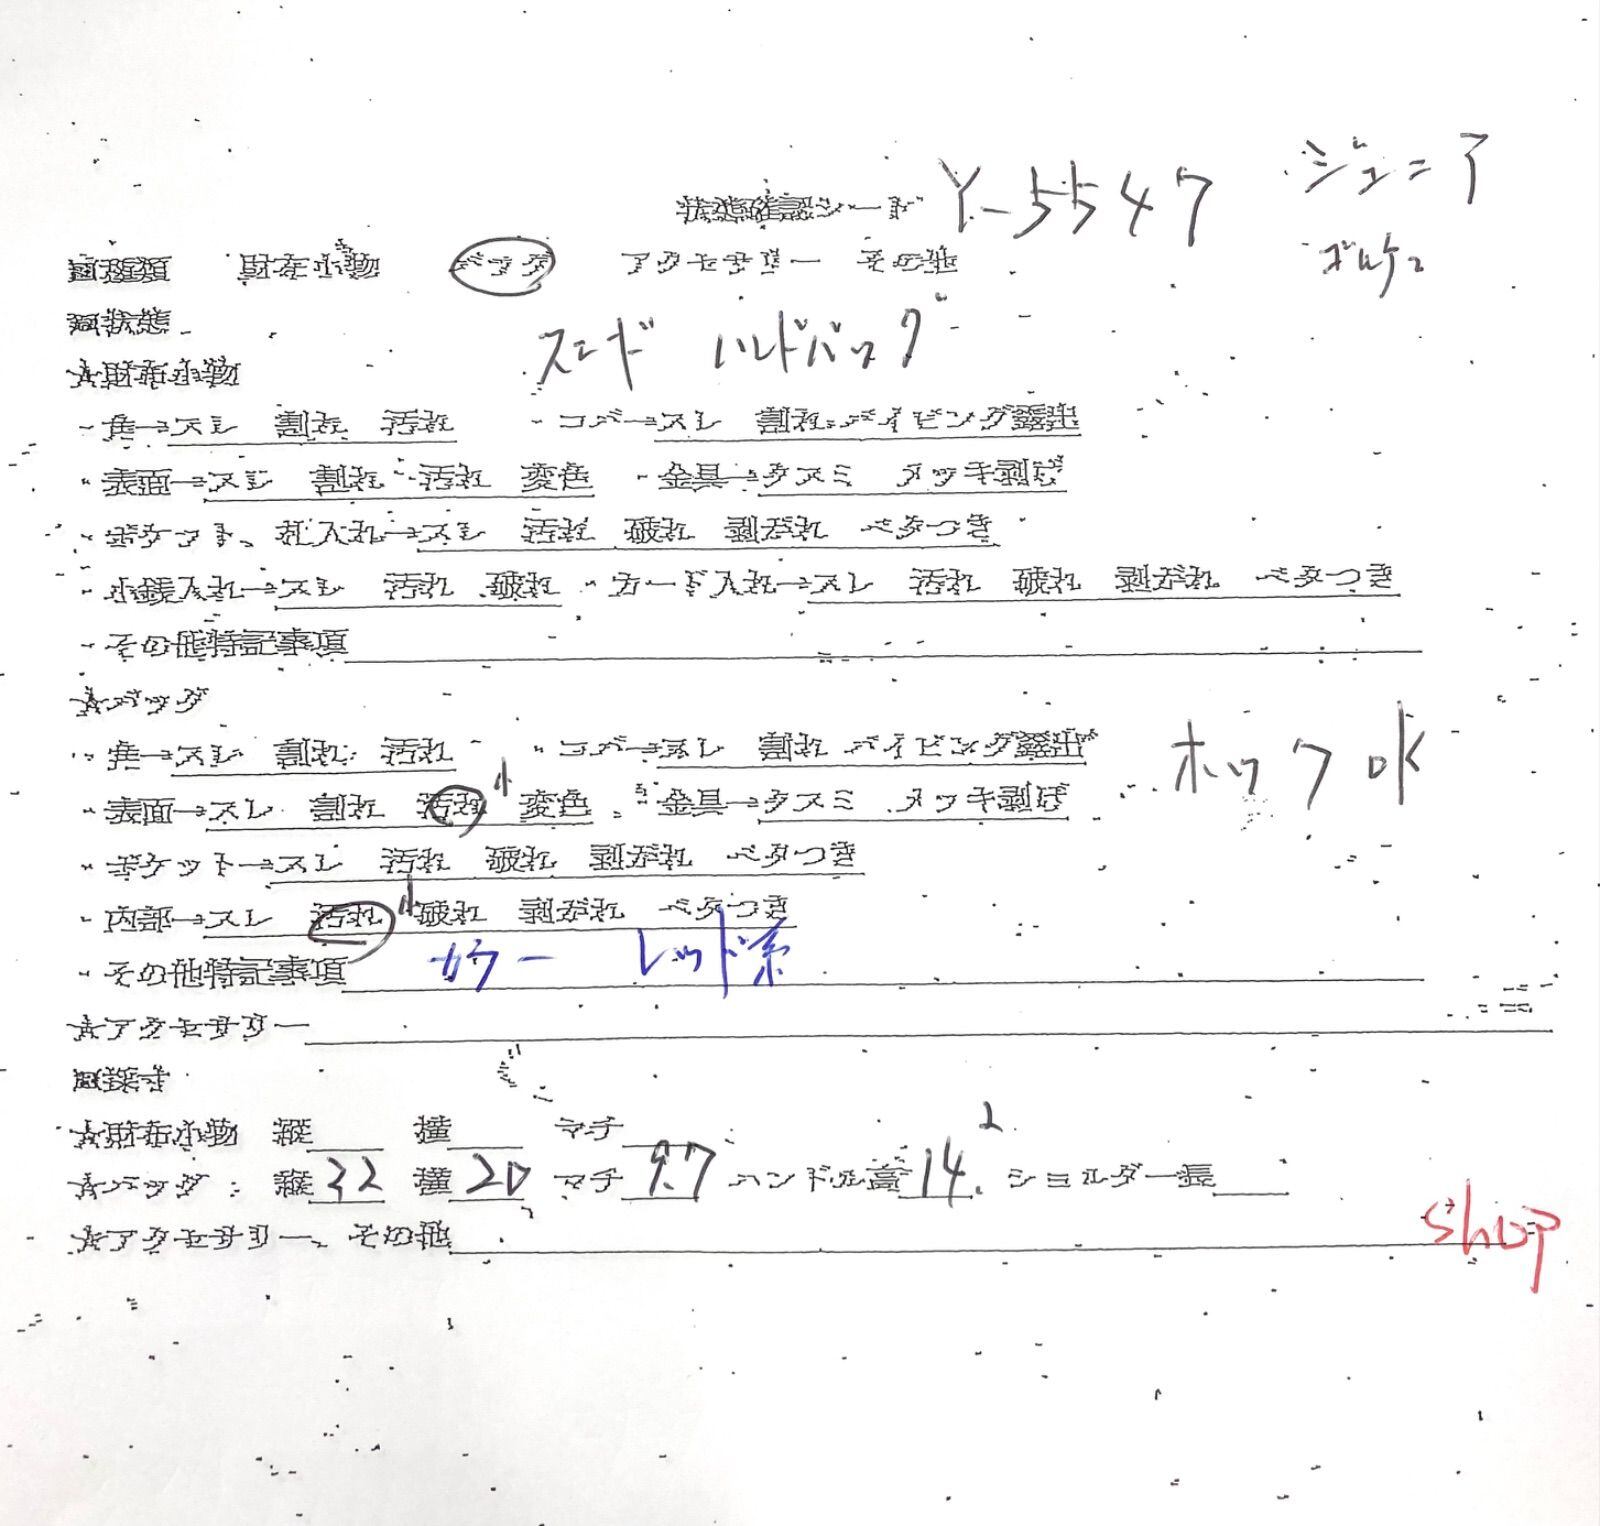 状態確認シート Y-5547 ジュニア
□種類 財布小物 バッグ アクセサリー その他
□状態 スエード ハンドバッグ
☆財布小物
・角→スレ 割れ 汚れ ・コバ→スレ 割れ パイピング露出
・表面→スレ 割れ 汚れ 変色 ・金具→クスミ メッキ剥げ
・ポケット、札入れ→スレ 汚れ 破れ 剥がれ ベタつき
・小銭入れ→スレ 汚れ 破れ ・カード入れ→スレ 汚れ 破れ 剥がれ ベタつき
・その他特記事項
☆バッグ
・角→スレ 割れ 汚れ ・コバ→スレ 割れ パイピング露出 ホック OK
・表面→スレ 割れ 汚れ 小 変色 ・金具→クスミ メッキ剥げ
・ポケット→スレ 汚れ 破れ 剥がれ ベタつき
・内部→スレ 汚れ 小 破れ 剥がれ ベタつき
・その他特記事項 カラー レッド系
☆アクセサリー
□採寸
☆財布小物 縦 横 マチ
☆バッグ 縦 32 横 20 マチ 9.7 ハンドル高 14.2 ショルダー長
☆アクセサリー、その他
shop